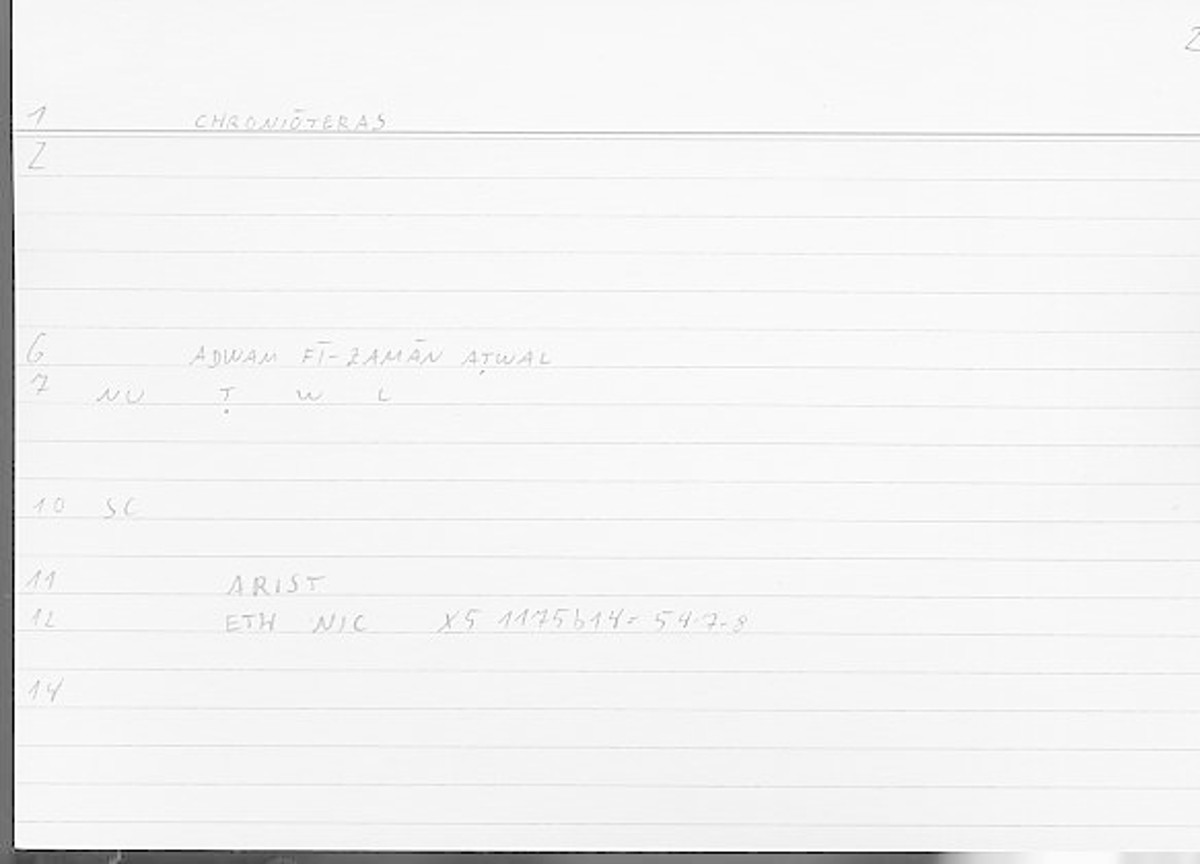 2
1 CHRONIŌTERAS
2
6 ADWAM FĪ-ZAMĀN AṬWAL
7 NU Ṭ W L
10 SC
11 ARIST
12 ETH NIC X5 1175b14= 547-8
14